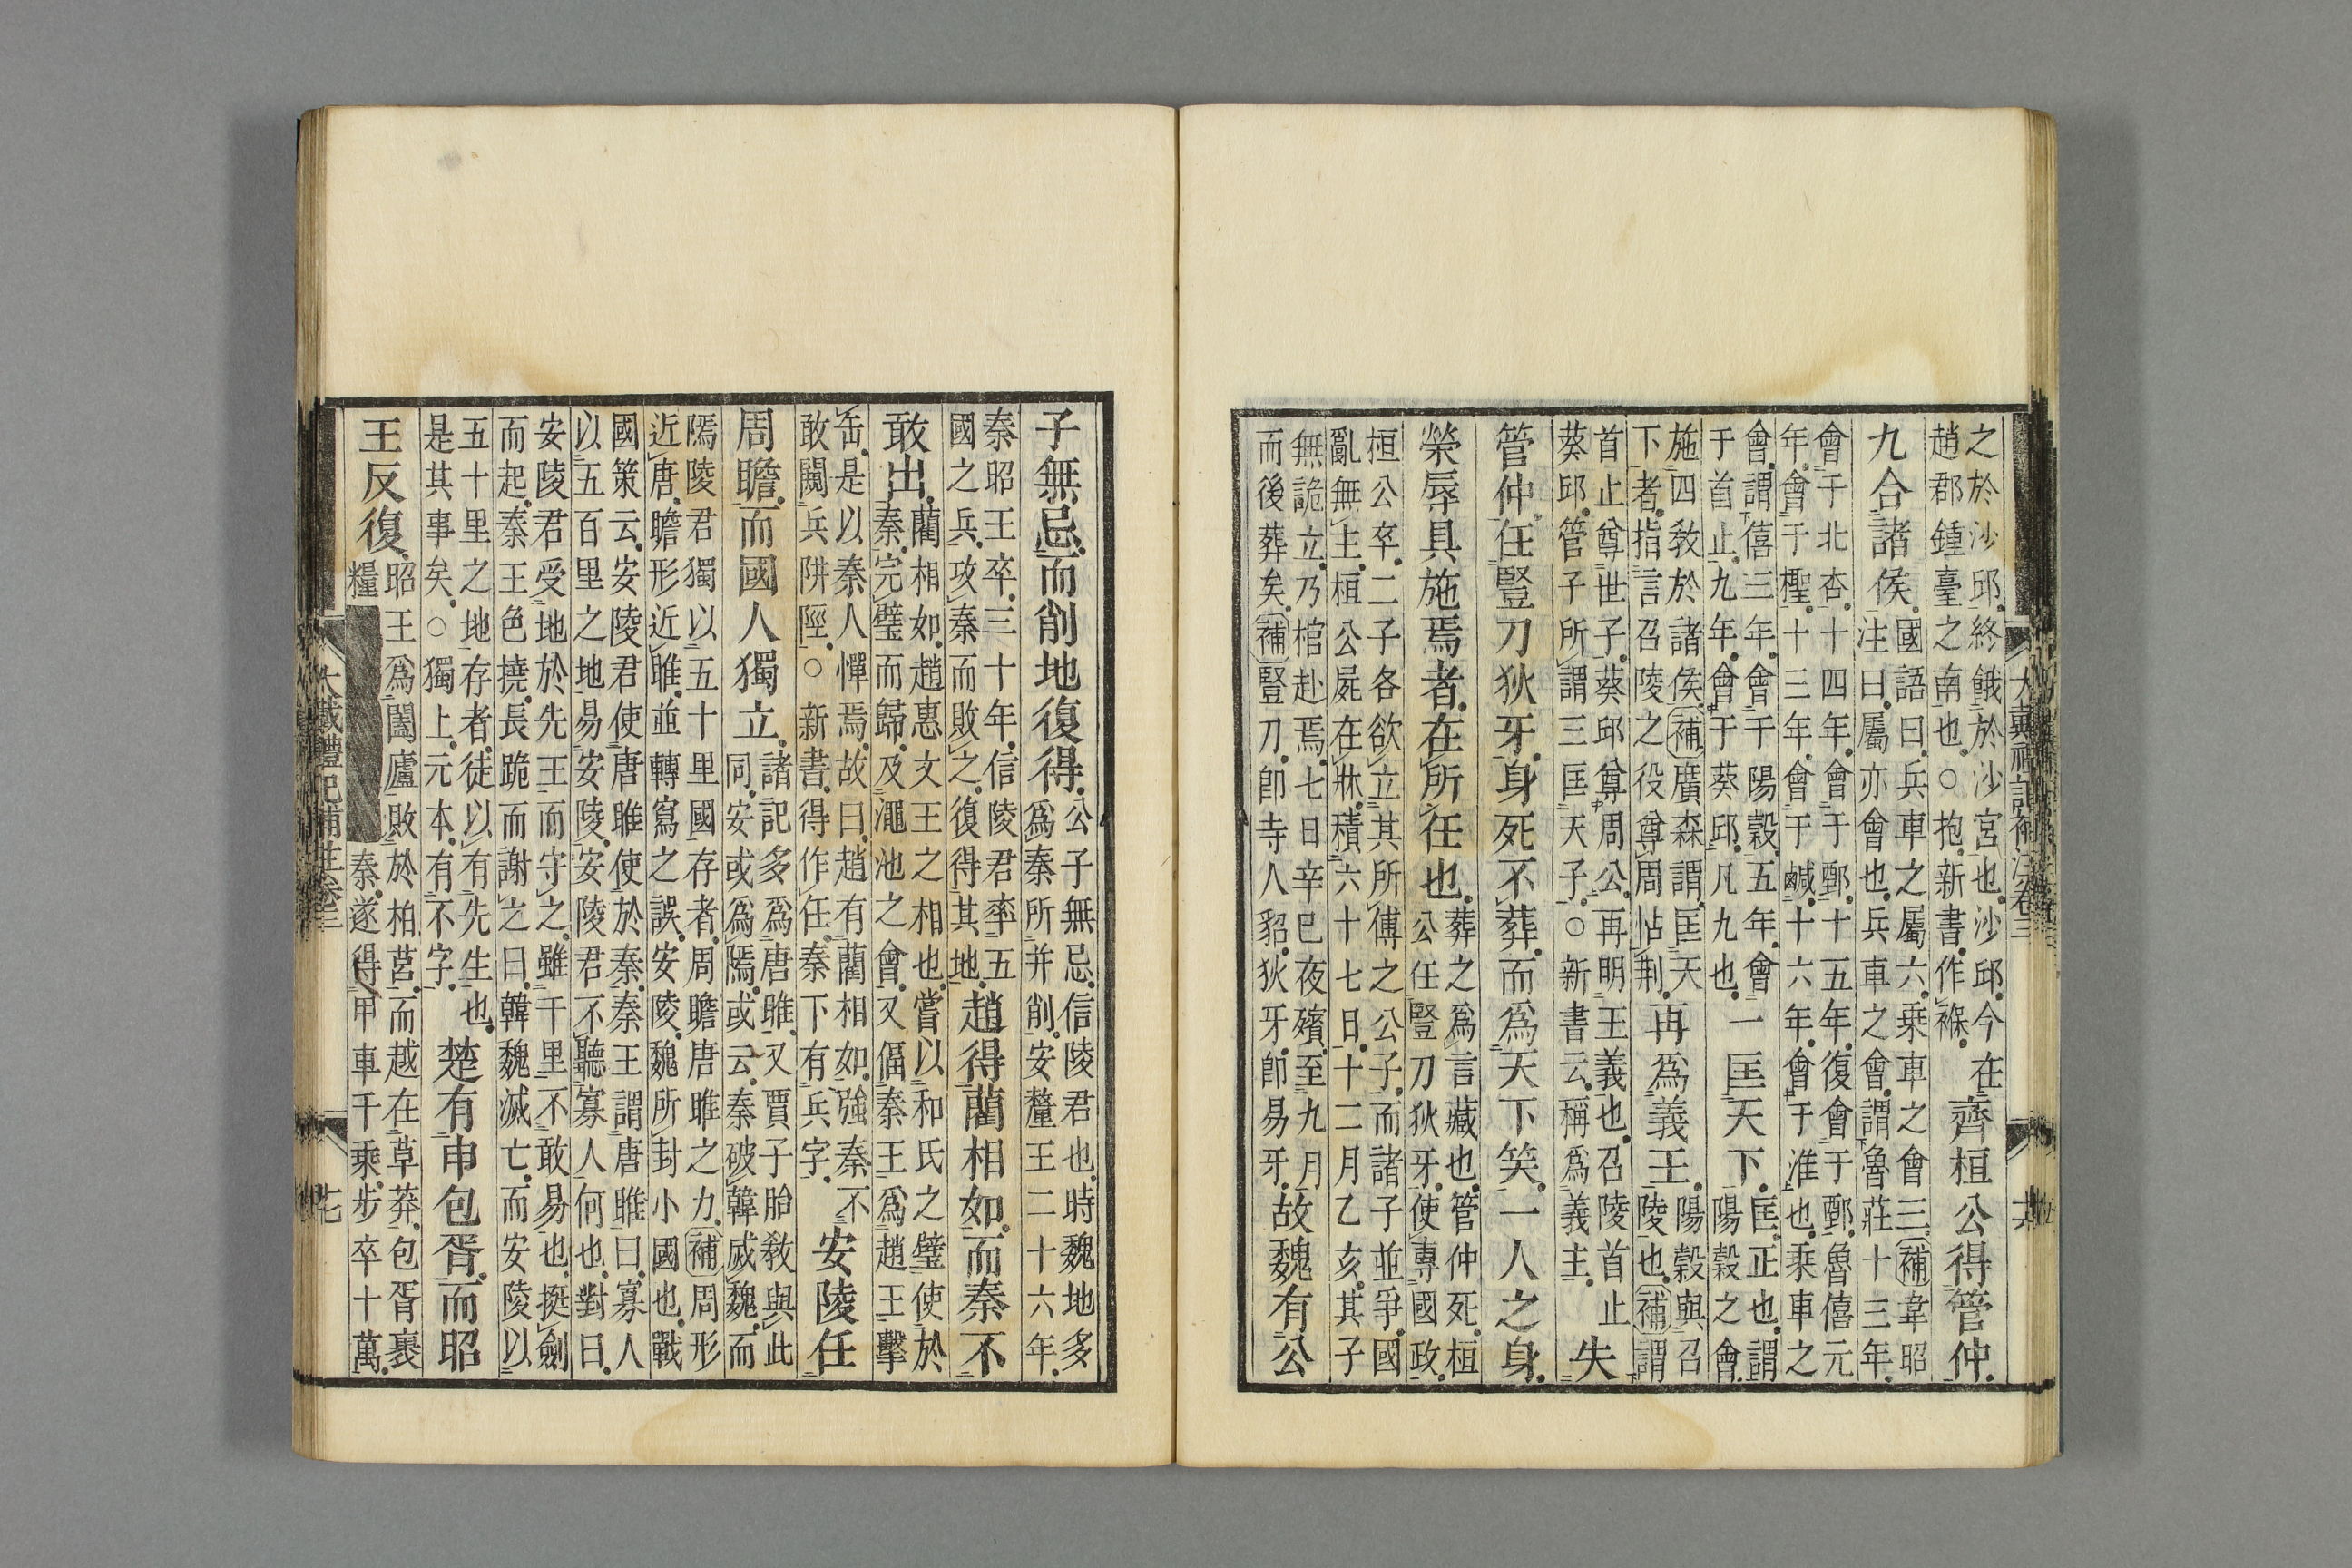 之於沙邱終餓於沙宮也沙邱今在趙郡鍾臺之南也○抱新書作褓齊桓公得管仲
九合諸侯國語曰兵車之屬六乘車之會三補韋昭注曰屬亦會也兵車之會謂魯莊十三年
會于北杏十四年會于鄄十五年復會于鄄魯僖元年會于檉十三年會于鹹十六年會于淮也乘車之
會謂僖三年會于陽穀五年會于首止九年會于葵邱凡九也一匡天下匡正也謂陽穀之會
施四敎於諸侯補廣森謂匡天下者指言召陵之役尊周怗荆再爲義王陽穀與召陵也補謂
首止尊世子葵邱尊周公再明王義也召陵首止葵邱管子所謂三匡天子○新書云稱爲義主失
管仲任豎刀狄牙身死不葬而爲天下笑一人之身
榮辱具施焉者在所任也葬之爲言藏也管仲死桓公任豎刀狄牙使專國政
桓公卒二子各欲立其所傅之公子而諸子並爭國亂無主桓公屍在牀積六十七日十二月乙亥其子
無詭立乃棺赴焉七日辛巳夜殯至九月而後葬矣補豎刀卽寺人貂狄牙卽易牙故魏有公
子無忌而削地復得公子無忌信陵君也時魏地多爲秦所并削安釐王二十六年
秦昭王卒三十年信陵君率五國之兵攻秦而敗之復得其地趙得藺相如而秦不
敢出藺相如趙惠文王之相也嘗以和氏之璧使於秦完璧而歸及澠池之會又偪秦王爲趙王擊
缶是以秦人憚焉故曰趙有藺相如強秦不敢闚兵阱陘○新書得作任秦下有兵字安陵任
周瞻而國人獨立諸記多爲唐雎又賈子胎敎與此同安或爲隝或云秦破韓滅魏而
隝陵君獨以五十里國存者周瞻唐雎之力補周形近唐瞻形近雎並轉寫之誤安陵魏所封小國也戰
國策云安陵君使唐雎使於秦秦王謂唐雎曰寡人以五百里之地易安陵安陵君不聽寡人何也對曰
安陵君受地於先王而守之雖千里不敢易也挺劍而起秦王色撓長跪而謝之曰韓魏滅亡而安陵以
五十里之地存者徒以有先生也是其事矣○獨上元本有不字楚有申包胥而昭
王反復昭王爲闔廬敗於柏莒而越在草莽包胥裹糧秦遂得甲車千乘步卒十萬
大戴禮記補注卷三
七